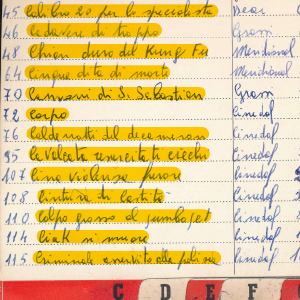 45 Calibro 20 per lo specialista Dear
46 Cadavere di troppo Gross
48 Chiari duro del Kung Fu Meridional
64 Cinque dita di morte Meridional
70 Cannoni di S. Sebastian Gross
72 Corpo Cinedaf
76 Calde notti del decameron Cinedaf
95 Calvata esercitati cechi Cinedaf
107 Cina violenza furore Cinedaf
108 Cintura di castità Cinedaf
110 Colpo grosso al jumbo jet Cinedaf
114 Ciak si muore Cinedaf 1
115 Criminale avvertite alla polizia Cinedaf 1
C D E F